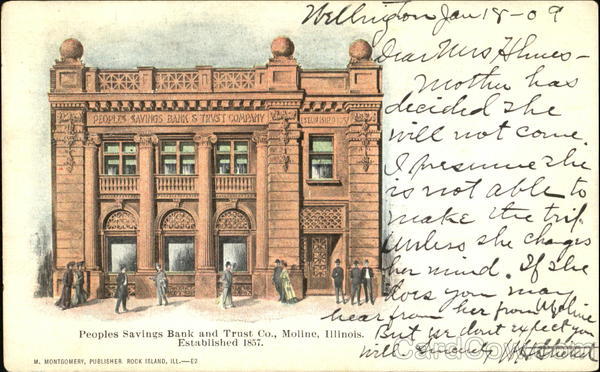 Wellington Jan 18-09
Dear Mrs
Mother has
decided she
will not come.
I presume she
is not able to
make the trip
unless she changes
her mind. If she
does you may
hear from her from Moline
But we dont expect you
will. Sincerely
PEOPLES SAVINGS BANK & TRUST COMPANY
Peoples Savings Bank and Trust Co., Moline, Illinois.
Established 1857.
M. MONTGOMERY, PUBLISHER. ROCK ISLAND, ILL.—E2
CardCow.com